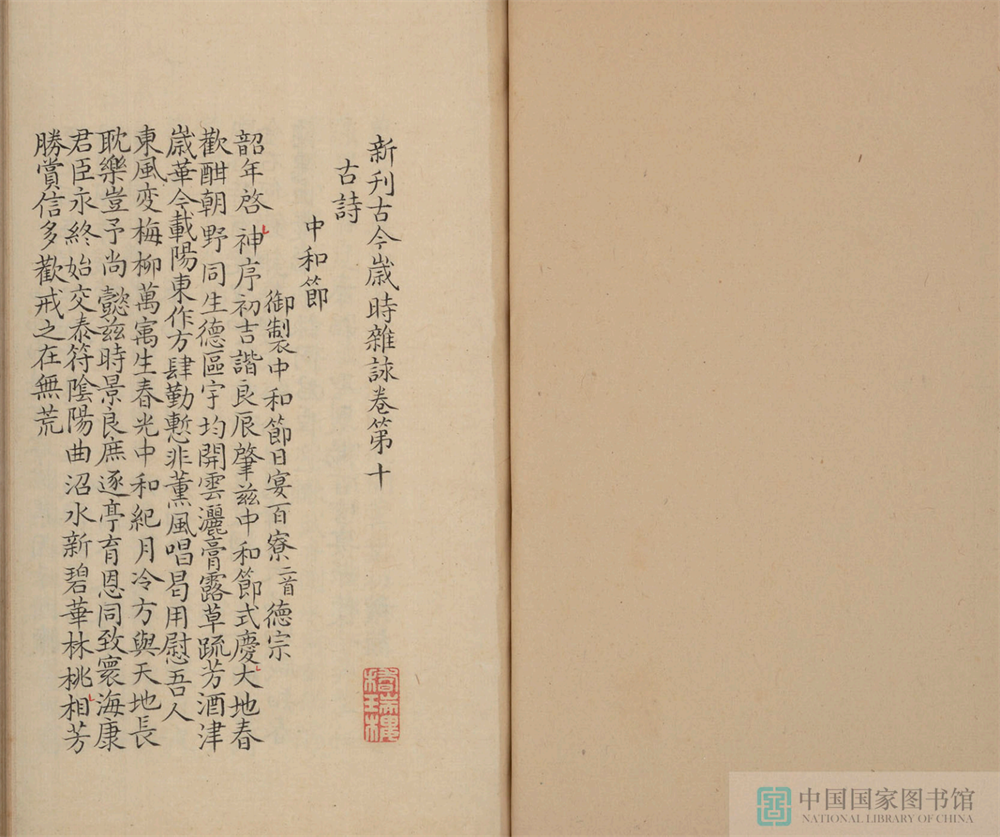 新刊古今歲時雜詠卷第十
古詩
中和節
御製中和節日宴百寮二首德宗
韶年啓神序初吉諧良辰肇兹中和節式慶大地春
歡酣朝野同生德區宇均開雲灑膏露草疏芳酒津
歲華今載陽東作方肆勤慙非薰風唱曷用慰吾人
東風変梅柳萬寓生春光中和紀月冷方與天地長
耽樂豈予尚懿兹時景良庶逐亭育恩同致寰海康
君臣永終始交泰符陰陽曲沼水新碧華林桃相芳
勝賞信多歡戒之在無荒
中国国家图书馆
NATIONAL LIBRARY OF CHINA